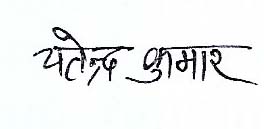 यतेन्द्र कुमार